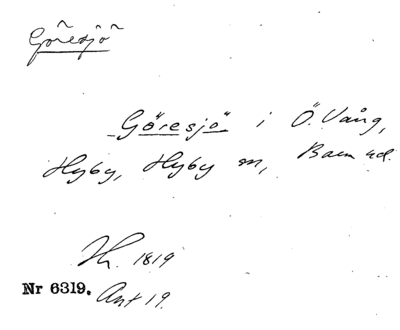 Göresjö
Göresjö i Ö. Vång,
Hyby, Hyby sn, Bara hd.
Th. 1819
Nr 6319. Ant 19.